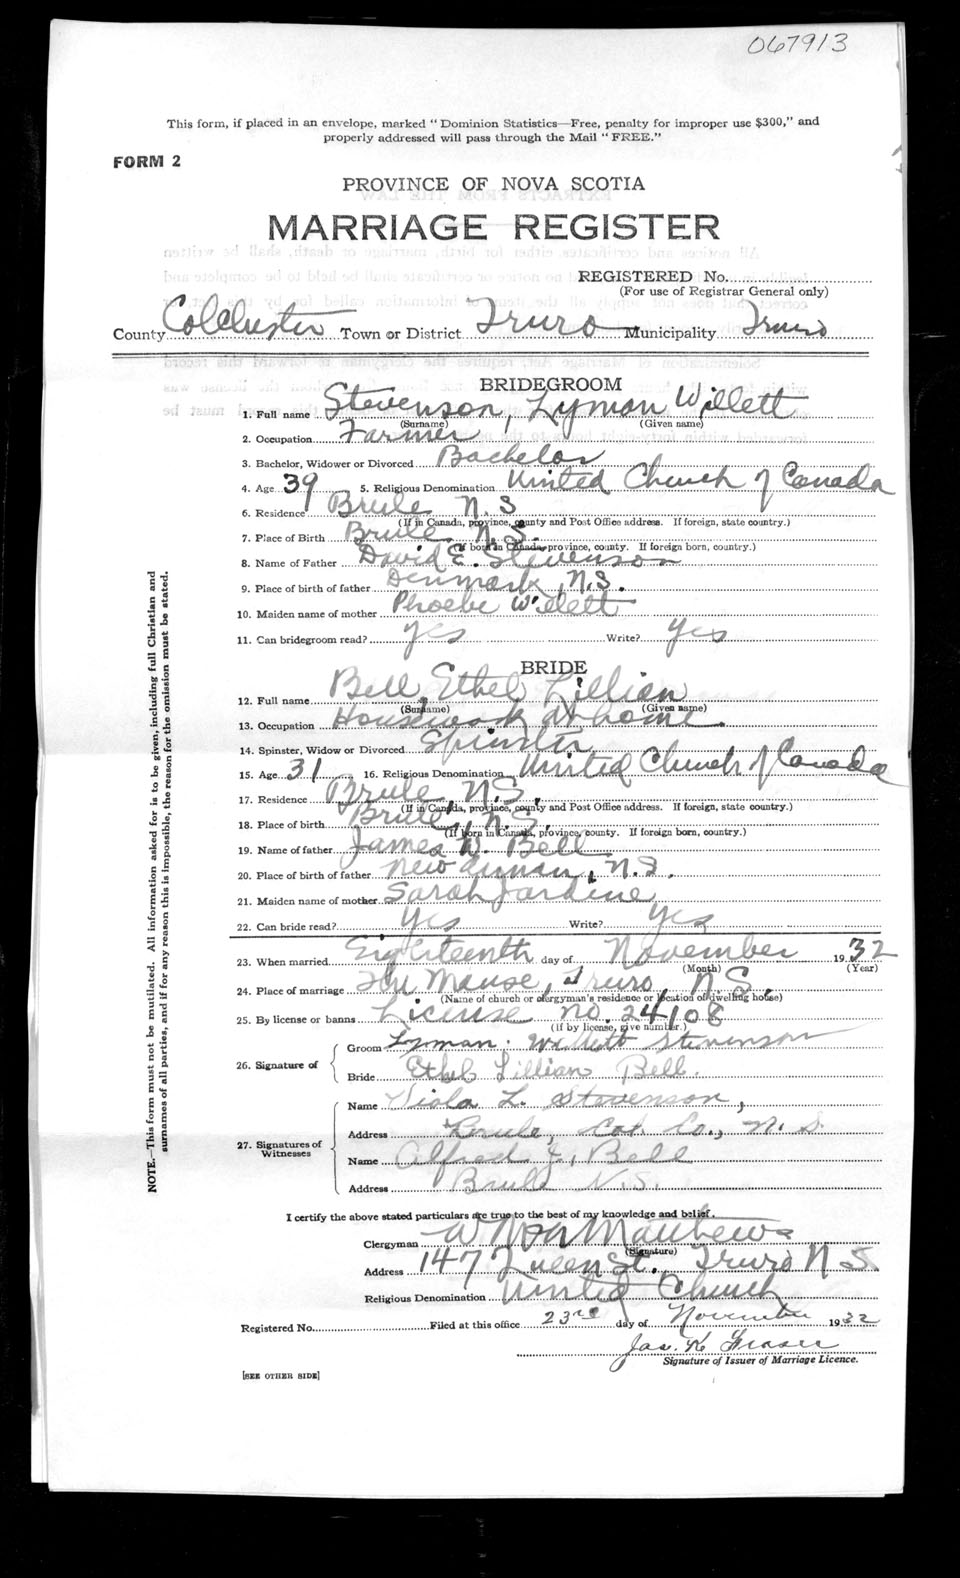 067913
This form, if placed in an envelope, marked "Dominion Statistics—Free, penalty for improper use $300," and
properly addressed will pass through the Mail "FREE."
FORM 2
PROVINCE OF NOVA SCOTIA
MARRIAGE REGISTER
REGISTERED No.
(For use of Registrar General only)
County Colchester Town or District Truro Municipality Truro
BRIDEGROOM
1. Full name Stevenson, Lyman Willett
(Surname) (Given name)
2. Occupation Farmer
3. Bachelor, Widower or Divorced Bachelor
4. Age 39 5. Religious Denomination United Church of Canada
6. Residence Brule N.S
(If in Canada, province, county and Post Office address. If foreign, state country.)
7. Place of Birth Brule N.S.
(If born in Canada, province, county. If foreign born, country.)
8. Name of Father David E. Stevenson
9. Place of birth of father Denmark, N.S.
10. Maiden name of mother Phoebe Willett
11. Can bridegroom read? yes Write? yes
BRIDE
12. Full name Bell, Ethel Lillian
(Surname) (Given name)
13. Occupation Housework at home.
14. Spinster, Widow or Divorced Spinster
15. Age 31 16. Religious Denomination United Church of Canada
17. Residence Brule N.S.
(If in Canada, province, county and Post Office address. If foreign, state country.)
18. Place of birth Brule, N.S.
(If born in Canada, province, county. If foreign born, country.)
19. Name of father James W. Bell
20. Place of birth of father New Annan, N.S.
21. Maiden name of mother Sarah Jardine
22. Can bride read? Yes Write? Yes
23. When married Eighteenth day of November 1932
(Month) (Year)
24. Place of marriage The Manse, Truro, N.S.
(Name of church or clergyman's residence or location of dwelling house)
25. By license or banns License no. 24108
(If by license, give number.)
26. Signature of
Groom Lyman Willett Stevenson
Bride Ethel Lillian Bell.
27. Signatures of Witnesses
Name Viola L. Stevenson,
Address Brule, Col. Co., N.S.
Name Alfred J. Bell
Address Brule N.S.
I certify the above stated particulars are true to the best of my knowledge and belief.
Clergyman Matthews
(Signature)
Address 147 Queen St. Truro N S.
Religious Denomination United Church
Registered No. Filed at this office 23rd day of November 1932
Jas. K Fraser
Signature of Issuer of Marriage Licence.
[SEE OTHER SIDE]
NOTE.—This form must not be mutilated. All information asked for is to be given, including full Christian and
surnames of all parties, and if for any reason this is impossible, the reason for the omission must be stated.